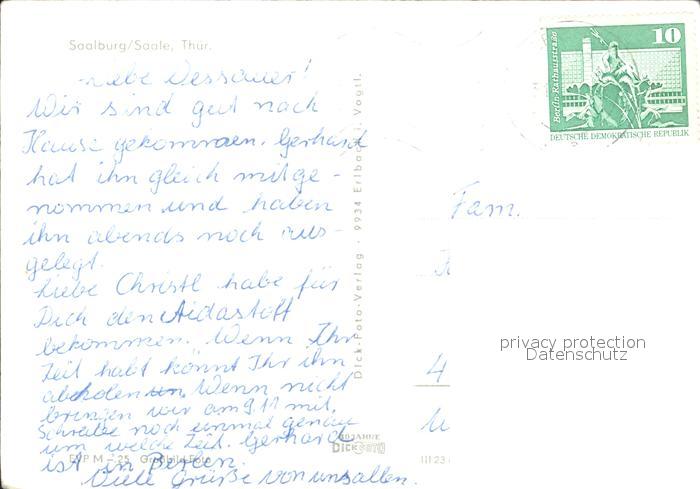 Saalburg/Saale, Thür.
Liebe Dessauer!
Wir sind gut nach
Hause gekommen. Gerhard
hat ihn gleich mitge-
nommen und haben
ihn abends noch aus-
gelegt.
Liebe Christl habe für
Dich den Aidastoff
bekommen. Wenn Ihr
Zeit habt könnt Ihr ihn
abholen. Wenn nicht
bringen wir am 9.11 mit.
Schreibe noch einmal genau
um welche Zeit. Gerhard
ist in Berlin.
Viele Grüße von uns allen.
EVP M –.25 Großbild-Foto
Dick-Foto-Verlag · 9934 Erlbach i. Vogtl.
JAHRE
DICK
III 23
10
Berlin-Rathausstraße
DEUTSCHE DEMOKRATISCHE REPUBLIK
Fam.
privacy protection
Datenschutz
4